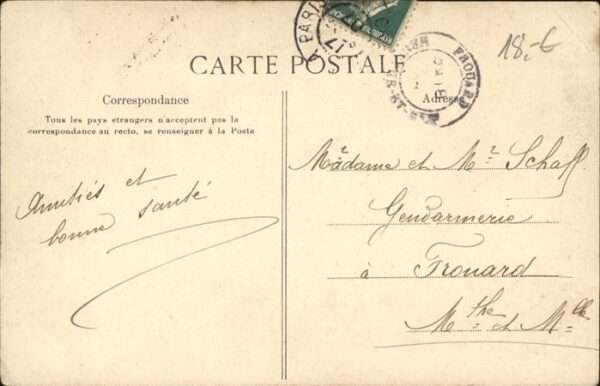 18.-€
CARTE POSTALE
Correspondance
Tous les pays étrangers n'acceptent pas la
correspondance au recto, se renseigner à la Poste
Adresse
Amitiés et
bonne santé
Madame et Mr Schaff
Gendarmerie
à Frouard
Mthe et Mlle
A PARIS
FROUARD